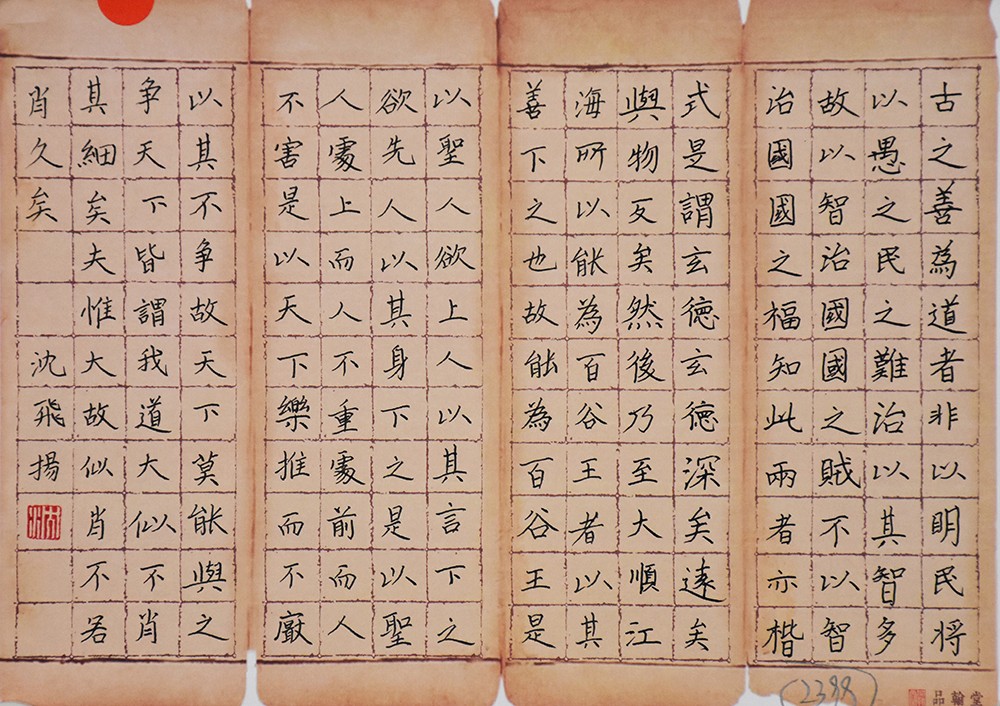 古之善為道者非以明民将
以愚之民之難治以其智多
故以智治國國之賊不以智
治國國之福知此兩者亦楷
式是謂玄德玄德深矣遠矣
與物反矣然後乃至大順江
海所以能為百谷王者以其
善下之也故能為百谷王是
以聖人欲上人以其言下之
欲先人以其身下之是以聖
人處上而人不重處前而人
不害是以天下樂推而不厭
以其不争故天下莫能與之
争天下皆謂我道大似不肖
其細矣夫惟大故似肖不若
肖久矣 沈飛揚
2388
品翰堂